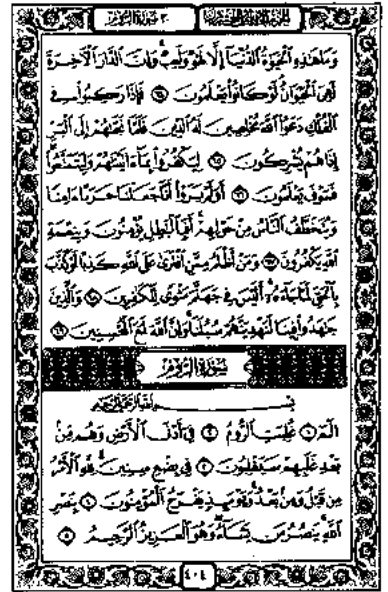 الجزء الحادي والعشرون
٣٠ سورة الروم
وَمَا هَٰذِهِ الْحَيَوٰةُ الدُّنْيَا إِلَّا لَهْوٌ وَلَعِبٌ وَإِنَّ الدَّارَ الْآخِرَةَ
لَهِيَ الْحَيَوَانُ لَوْ كَانُوا يَعْلَمُونَ ٦٤ فَإِذَا رَكِبُوا فِي
الْفُلْكِ دَعَوُا اللَّهَ مُخْلِصِينَ لَهُ الدِّينَ فَلَمَّا نَجَّىٰهُمْ إِلَى الْبَرِّ
إِذَا هُمْ يُشْرِكُونَ ٦٥ لِيَكْفُرُوا بِمَا ءَاتَيْنَٰهُمْ وَلِيَتَمَتَّعُوا
فَسَوْفَ يَعْلَمُونَ ٦٦ أَوَلَمْ يَرَوْا أَنَّا جَعَلْنَا حَرَمًا ءَامِنًا
وَيُتَخَطَّفُ النَّاسُ مِنْ حَوْلِهِمْ أَفَبِالْبَٰطِلِ يُؤْمِنُونَ وَبِنِعْمَةِ
اللَّهِ يَكْفُرُونَ ٦٧ وَمَنْ أَظْلَمُ مِمَّنِ افْتَرَىٰ عَلَى اللَّهِ كَذِبًا أَوْ كَذَّبَ
بِالْحَقِّ لَمَّا جَاءَهُ أَلَيْسَ فِي جَهَنَّمَ مَثْوًى لِلْكَٰفِرِينَ ٦٨ وَالَّذِينَ
جَٰهَدُوا فِينَا لَنَهْدِيَنَّهُمْ سُبُلَنَا وَإِنَّ اللَّهَ لَمَعَ الْمُحْسِنِينَ ٦٩
سُورَةُ الرُّومِ
بِسْمِ اللَّهِ الرَّحْمَٰنِ الرَّحِيمِ
الٓمٓ ١ غُلِبَتِ الرُّومُ ٢ فِي أَدْنَى الْأَرْضِ وَهُم مِّنْ
بَعْدِ غَلَبِهِمْ سَيَغْلِبُونَ ٣ فِي بِضْعِ سِنِينَ لِلَّهِ الْأَمْرُ
مِن قَبْلُ وَمِنْ بَعْدُ وَيَوْمَئِذٍ يَفْرَحُ الْمُؤْمِنُونَ ٤ بِنَصْرِ
اللَّهِ يَنصُرُ مَن يَشَاءُ وَهُوَ الْعَزِيزُ الرَّحِيمُ ٥
٤٠٤